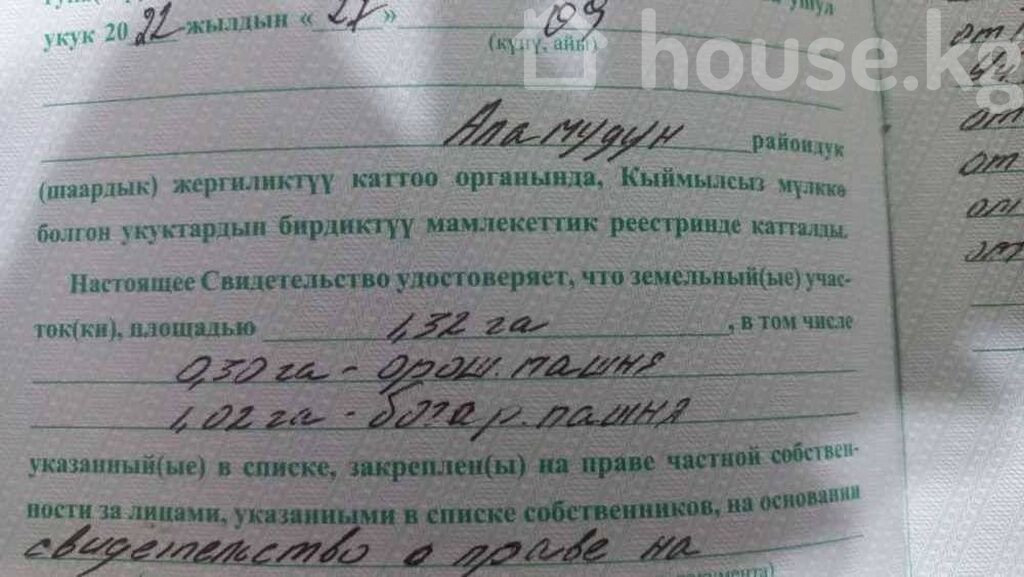 укук 2022 -жылдын «27» 09
(күнү, айы)
house.kg
Аламудун райондук
(шаардык) жергиликтүү каттоо органында, Кыймылсыз мүлккө
болгон укуктардын бирдиктүү мамлекеттик реестринде катталды.
Настоящее Свидетельство удостоверяет, что земельный(ые) учас-
ток(ки), площадью 1,32 га , в том числе
0,30 га - орош. пашня
1,02 га - богар. пашня
указанный(ые) в списке, закреплен(ы) на праве частной собствен-
ности за лицами, указанными в списке собственников, на основании
свидетельство о праве на